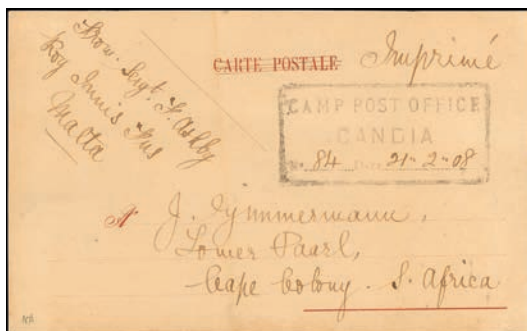 From. Sergt. F. Ashby
Roy Innis Fus
Malta
CARTE POSTALE
Imprimé
CAMP POST OFFICE
CANDIA
No. 84 Date 21-2-08
A
J. Zymmermann,
Lower Paarl,
Cape Colony. S. Africa